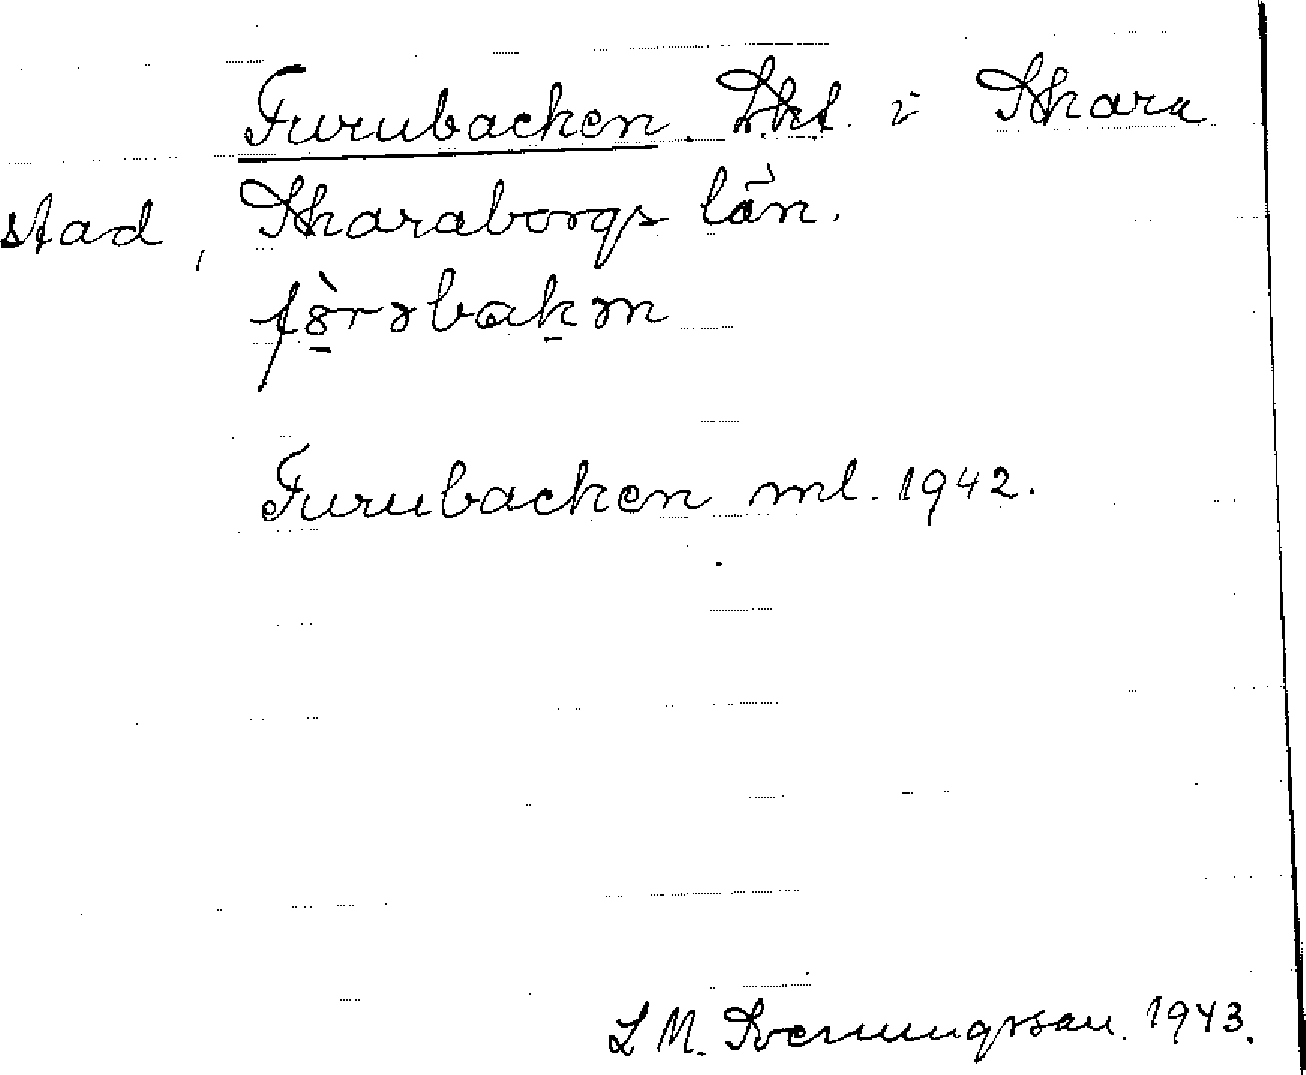 Furubacken. Lht. i Skara
stad, Skaraborgs län.
fȍrəbakən
Furubacken ml. 1942.
L M. Svenungsson. 1943.